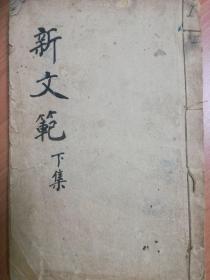 新文範
下集